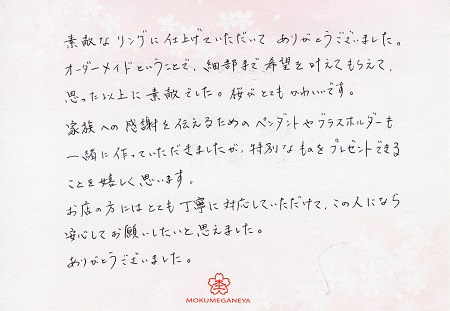 素敵なリングに仕上げていただいて ありがとうございました。
オーダーメイドということで、細部まで希望を叶えてもらえて、
思った以上に素敵でした。桜がとてもかわいいです。
家族への感謝を伝えるためのペンダントやブラスホルダーも
一緒に作っていただきましたが、特別なものをプレゼントできる
ことを嬉しく思います。
お店の方にはとても丁寧に対応していただけて、この人になら
安心してお願いしたいと思えました。
ありがとうございました。
MOKUMEGANEYA